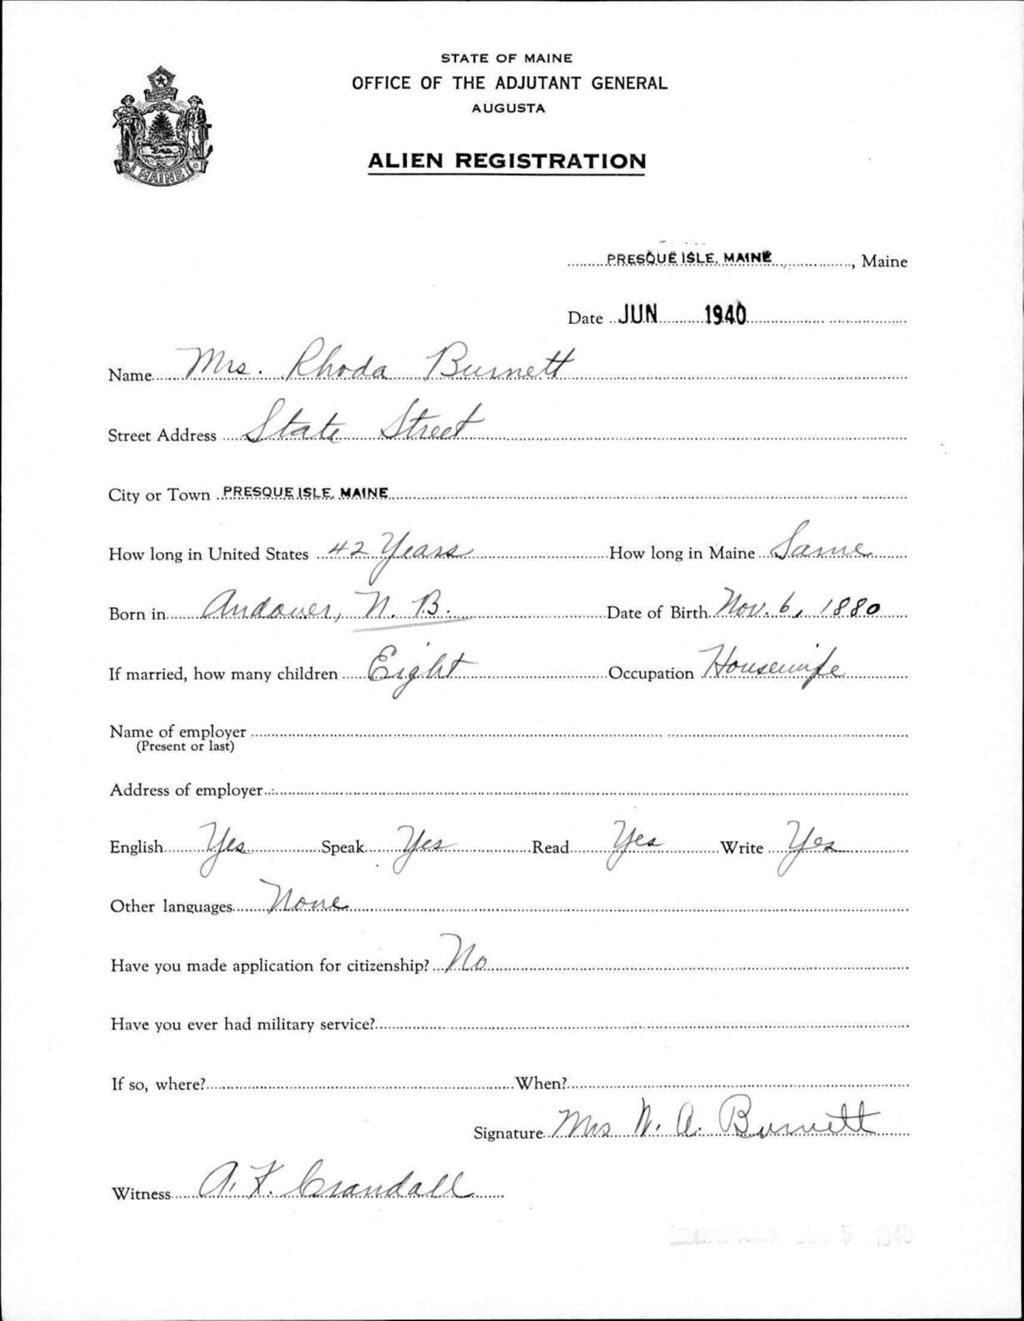 STATE OF MAINE
OFFICE OF THE ADJUTANT GENERAL
AUGUSTA
MAINE
ALIEN REGISTRATION
PRESQUE ISLE, MAINE, Maine
Date JUN 1940
Name Mrs. Rhoda Burnett
Street Address State Street
City or Town PRESQUE ISLE, MAINE
How long in United States 42 Years How long in Maine Same
Born in Andover, N. B. Date of Birth Nov. 6, 1880
If married, how many children Eight Occupation Housewife
Name of employer
(Present or last)
Address of employer
English Yes Speak Yes Read Yes Write Yes
Other languages None
Have you made application for citizenship? No
Have you ever had military service?
If so, where? When?
Signature Mrs W. A. Burnett
Witness A. F. Crandall
1940